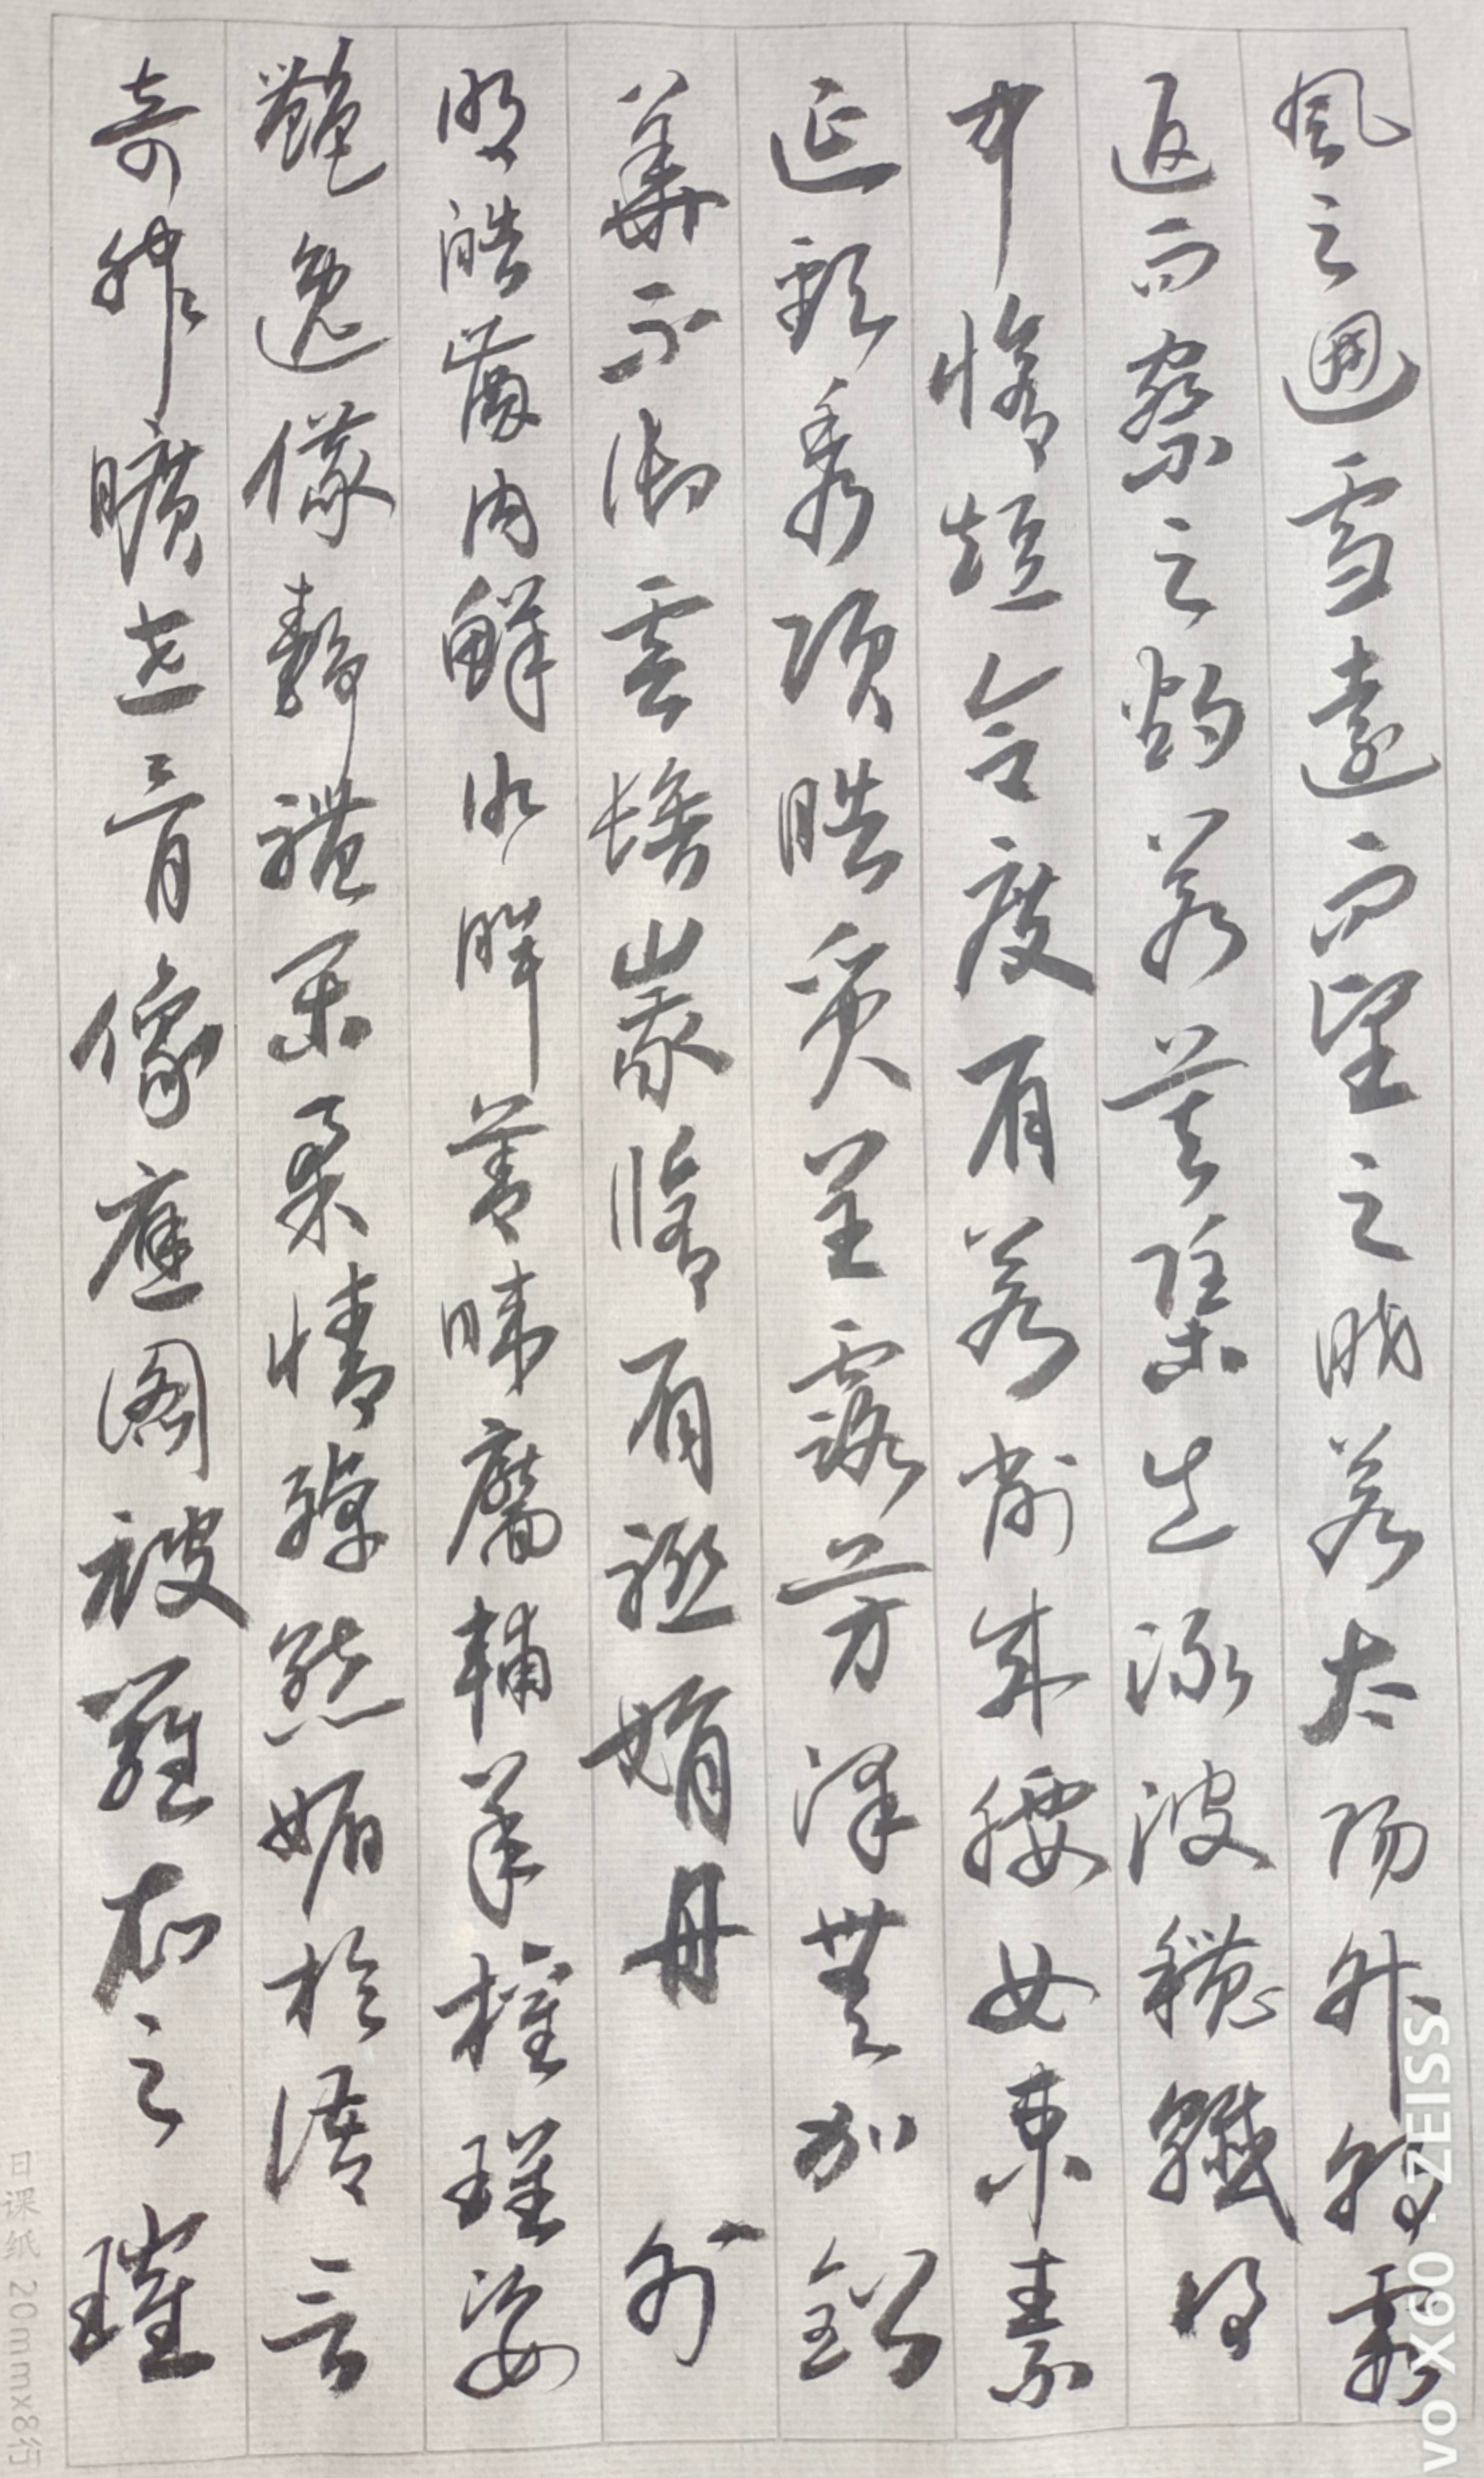 風之迴雪遠而望之晈若太陽升朝霞
返而察之灼若芙蕖出淥波穠纖得
中脩短合度肩若削成腰如束素
延頸秀項皓質呈露芳澤無加鉛
華不御雲髻峩脩眉聯娟丹外
朗皓齒内鮮明眸善睞靨輔承權瓌姿
豔逸儀靜體閑柔情綽態媚於語言
奇服曠世骨像應圖披羅衣之璀
日课纸 20mmx8行
vo X60 · ZEISS